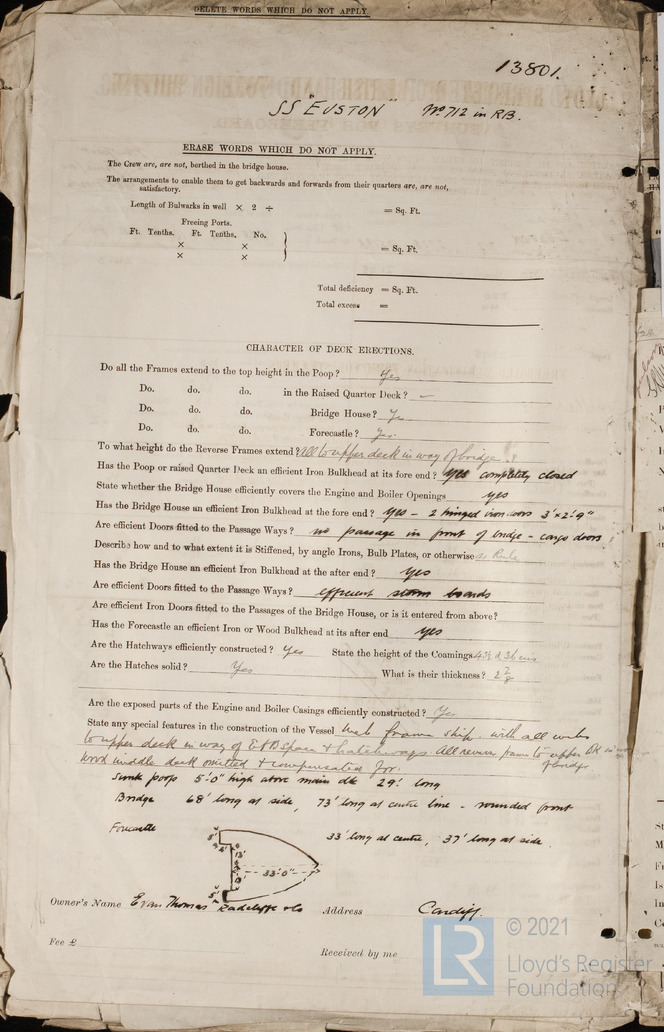 DELETE WORDS WHICH DO NOT APPLY.
13801.
SS "EUSTON" No 712 in RB.
ERASE WORDS WHICH DO NOT APPLY.
The Crew are, are not, berthed in the bridge house.
The arrangements to enable them to get backwards and forwards from their quarters are, are not,
satisfactory.
Length of Bulwarks in well × 2 ÷ = Sq. Ft.
Freeing Ports.
Ft. Tenths. Ft. Tenths. No.
× ×
= Sq. Ft.
× ×
Total deficiency = Sq. Ft.
Total excess =
CHARACTER OF DECK ERECTIONS.
Do all the Frames extend to the top height in the Poop? Yes
Do. do. do. in the Raised Quarter Deck? —
Do. do. do. Bridge House? Yes
Do. do. do. Forecastle? Yes.
To what height do the Reverse Frames extend? All to upper deck in way of bridge
Has the Poop or raised Quarter Deck an efficient Iron Bulkhead at its fore end? yes completely closed
State whether the Bridge House efficiently covers the Engine and Boiler Openings yes
Has the Bridge House an efficient Iron Bulkhead at the fore end? yes - 2 hinged iron doors 3' x 2'.9"
Are efficient Doors fitted to the Passage Ways? no passage in front of bridge - cargo doors
Describe how and to what extent it is Stiffened, by angle Irons, Bulb Plates, or otherwise as Rule
Has the Bridge House an efficient Iron Bulkhead at the after end? yes
Are efficient Doors fitted to the Passage Ways? efficient storm boards
Are efficient Iron Doors fitted to the Passages of the Bridge House, or is it entered from above?
Has the Forecastle an efficient Iron or Wood Bulkhead at its after end yes
Are the Hatchways efficiently constructed? Yes State the height of the Coamings
Are the Hatches solid? Yes What is their thickness?
Are the exposed parts of the Engine and Boiler Casings efficiently constructed? Yes
State any special features in the construction of the Vessel Web frame ship. with all webs
to upper deck in way of E & B space & hatchways. All reverse frames to upper DK in way
of bridge
Wood middle deck omitted & compensated for.
Sunk poop 5'-0" high above main dk 29' long
Bridge 68' long at side, 73' long at centre line - rounded front
Forecastle 33' long at centre, 37' long at side.
5'
4'
13'
33'-0"
13
5'
Owner's Name Evan Thomas Radcliffe & Co Address Cardiff.
Fee £ Received by me
© 2021
LR
Lloyd's Register
Foundation